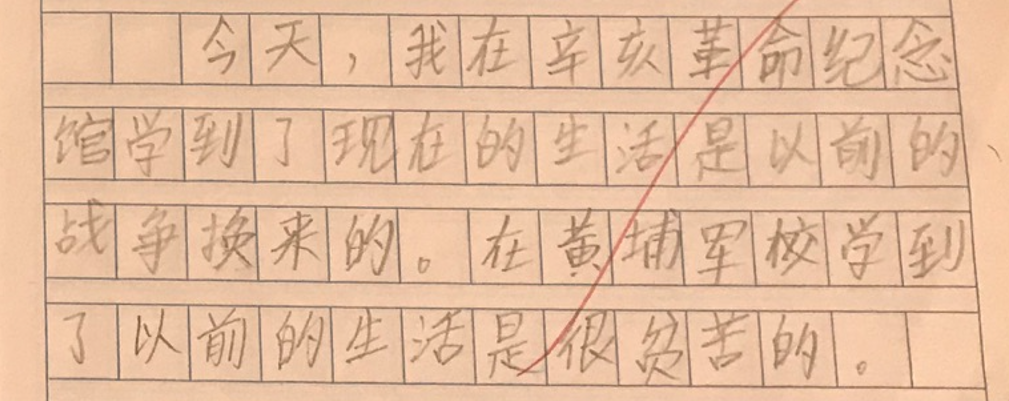 今天，我在辛亥革命纪念
馆学到了现在的生活是以前的
战争换来的。在黄埔军校学到
了以前的生活是很贫苦的。